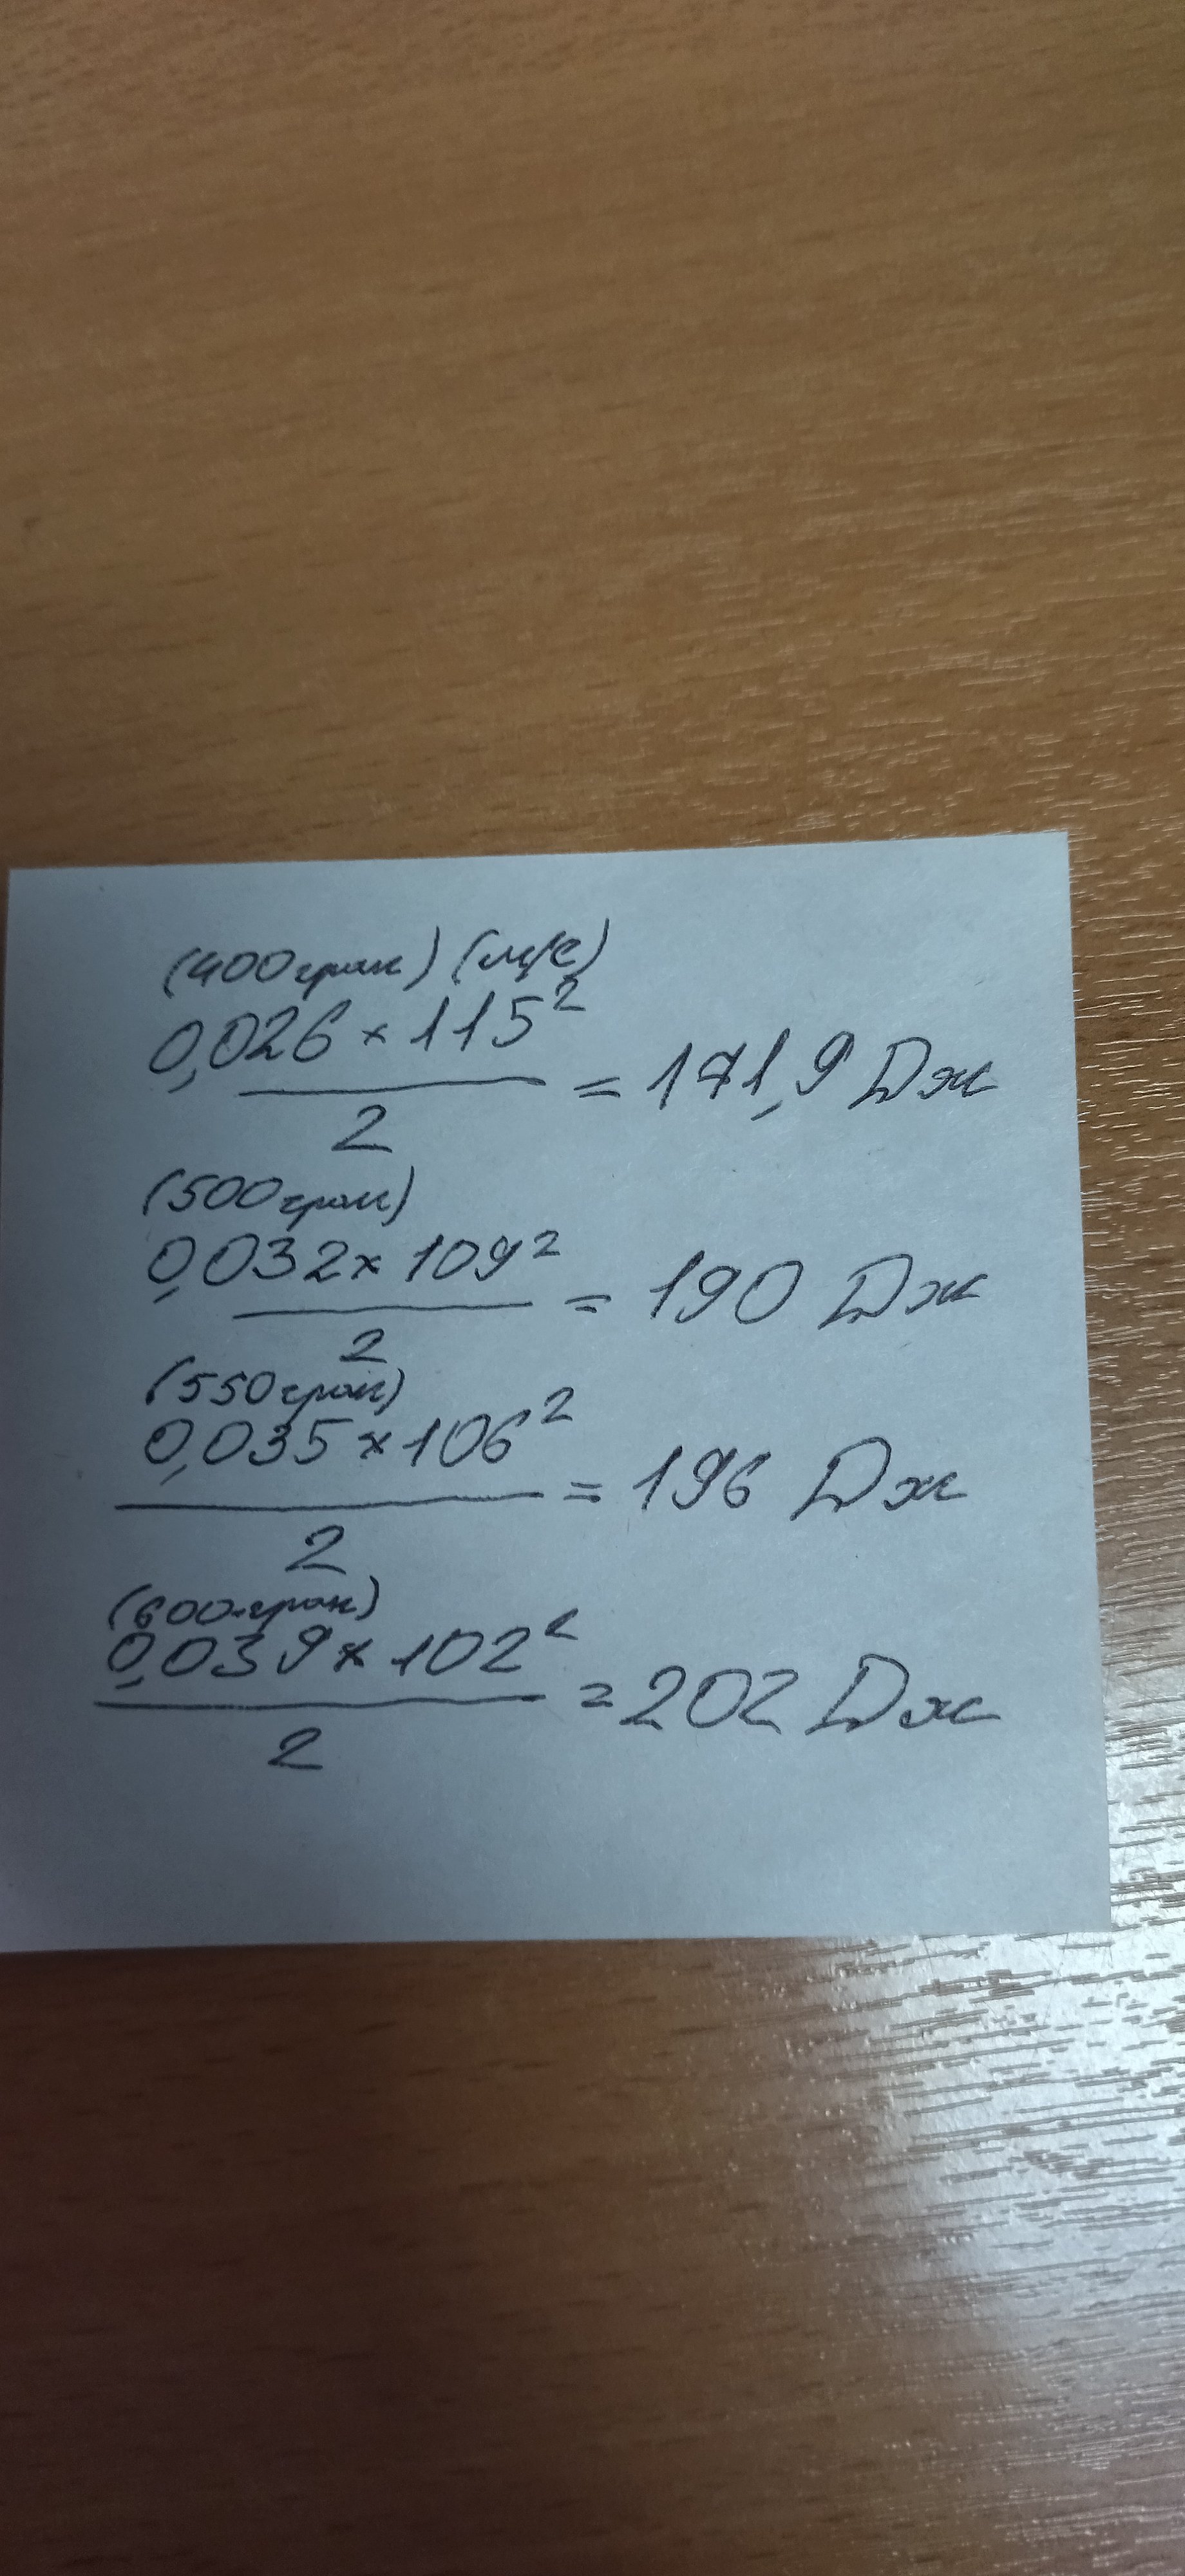 (400гран) (м/с)
0,026 × 115²
= 171,9 Дж
2
(500гран)
0,032 × 109²
= 190 Дж
2
(550гран)
0,035 × 106²
= 196 Дж
2
(600гран)
0,039 × 102²
= 202 Дж
2